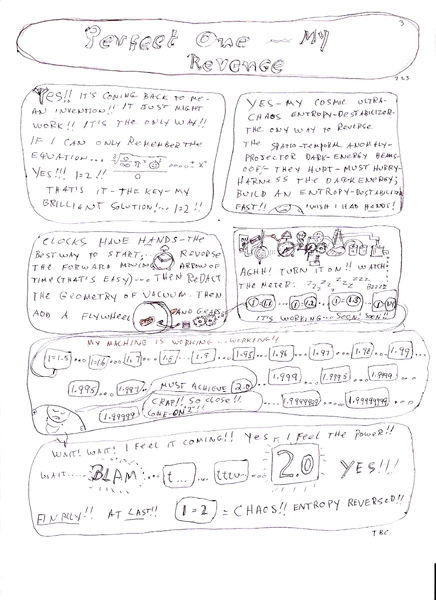 Perfect One — My
Revenge
3
923
YES!! IT'S COMING BACK TO ME-
AN INVENTION!! IT JUST MIGHT
WORK!! IT'S THE ONLY WAY!!
IF I CAN ONLY REMEMBER THE
EQUATION...
YES!!! 1=2!! 0
THAT'S IT-THE KEY-MY
BRILLIANT SOLUTION!... 1=2!!
YES-MY COSMIC ULTRA-
CHAOS ENTROPY-DESTABILIZER
THE ONLY WAY TO REVERSE
THE SPATIO-TEMPORAL ANOMALY-
PROJECTOR DARK-ENERGY BEAMS-
OOF!- THEY HURT- MUST HURRY-
HARNESS THE DARK ENERGY;
BUILD AN ENTROPY-DESTABILIZER
FAST!! WISH I HAD HANDS!
CLOCKS HAVE HANDS-THE
BEST WAY TO START... REVERSE
THE FORWARD MOVING ARROW OF
TIME (THAT'S EASY)... THEN REDACT
THE GEOMETRY OF VACUUM. THEN
ADD A FLYWHEEL AND GEARS
AGHH! TURN IT ON!! WATCH
THE METER:
1=1.1 ... 1=1.2 ... 1=1.3 ... 1=1.4
IT'S WORKING... SOON! SOON!!
MY MACHINE IS WORKING...WORKING!!
1=1.5 1=1.6 1.7 1.8 1.9 1.95 1.96 1.97 1.98 1.99
1.995 1.997 MUST ACHIEVE 2.0 1.999 1.9995 1.9999
1.99999 CRAP!! SO CLOSE!! 1.9999999 1.99999999
COME ON 2!!
WAIT! WAIT! I FEEL IT COMING!! YES - I FEEL THE POWER!!
WAIT.... BLAM t... tttu... 2.0 YES!!!
FINALLY!! AT LAST!! 1=2 = CHAOS!! ENTROPY REVERSED!!
TBC.